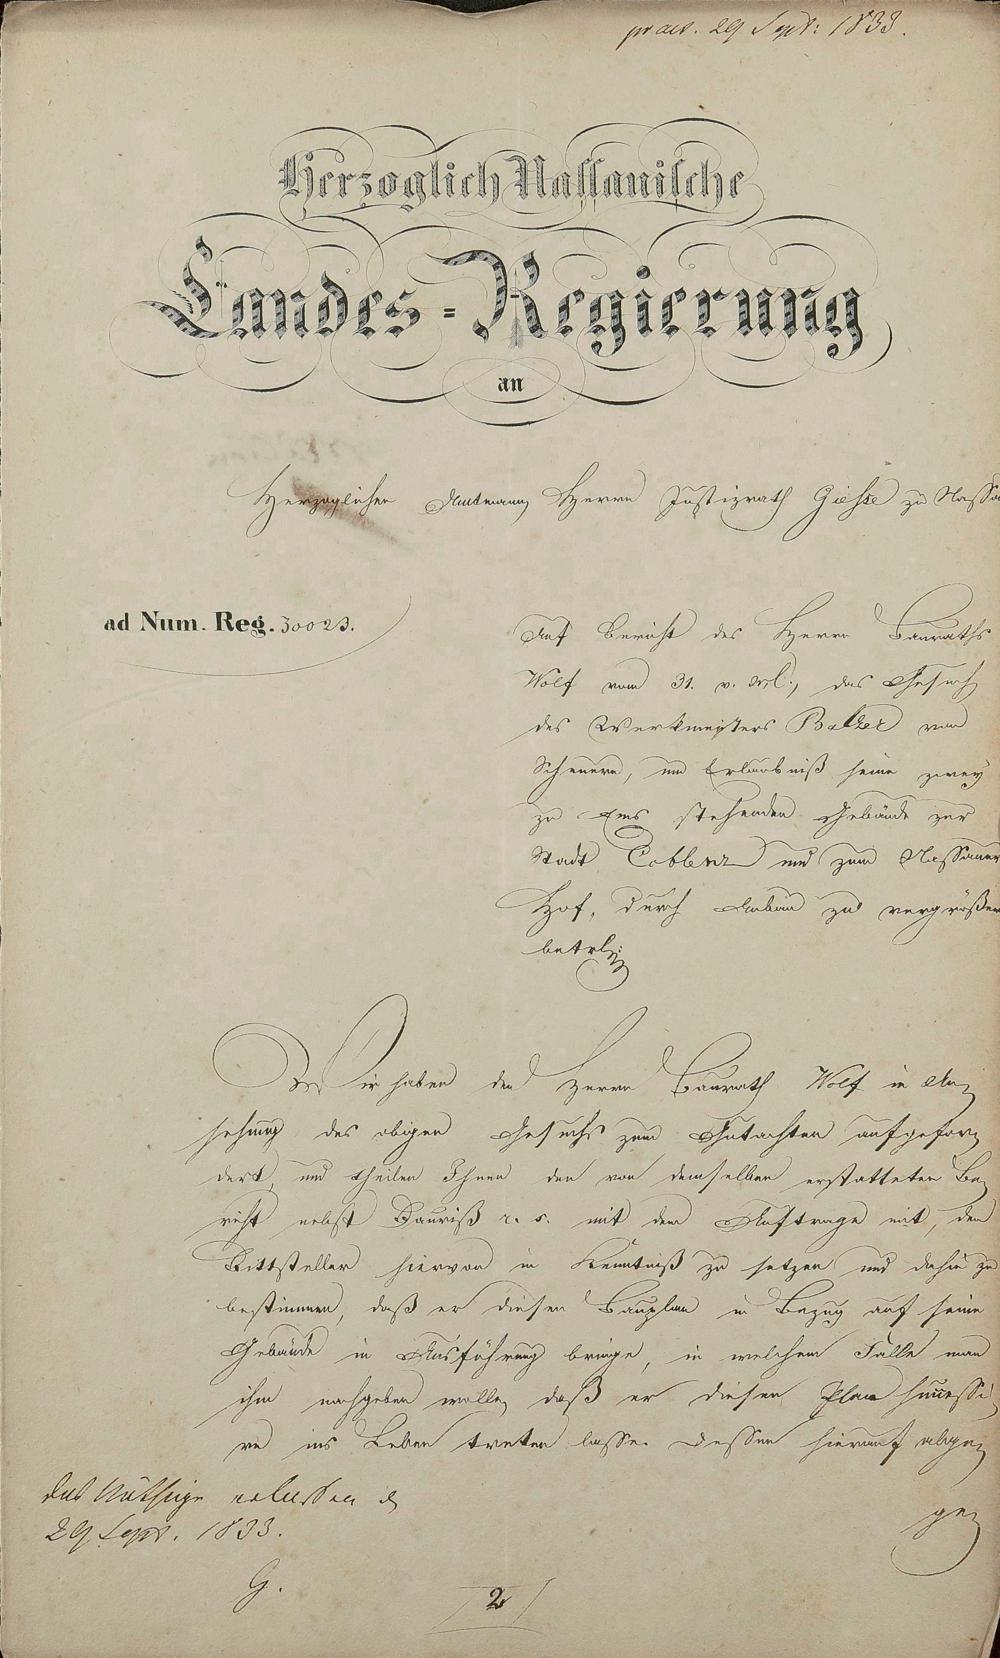 praes. 29 Sept: 1833.
Herzoglich Nassauische
Landes=Regierung
an
Herzoglichen Amtmann Herrn Justizrath Giesse zu Nassau
ad Num. Reg. 30023.
Auf Bericht des Herrn Bauraths
Wolf vom 31. v. M., das Gesuch
des Werkmeisters Balzer von
Scheuern, um Erlaubniß seine zwey
zu Ems stehenden Gebäude zur
Stadt Coblenz und zum Nassauer
Hof, durch Anbau zu vergrößern
betr.
Wir haben den Herrn Baurath Wolf in An-
sehung des obigen Gesuchs zum Gutachten aufgefor-
dert, und theilen Ihnen den von demselben erstatteten Be-
richt nebst Bauriß r. s. mit dem Auftrage mit, den
Bittsteller hiervon in Kenntniß zu setzen und dahin zu
bestimmen, daß er diesen Bauplan in Bezug auf seine
Gebäude in Ausführung bringe, in welchem Falle man
ihm nachgeben wolle, daß er diesen Plan successi-
ve ins Leben treten lasse. Dessen hierauf abge-
ge-
das Nöthige erlassen d
29 Sept. 1833.
G.
2